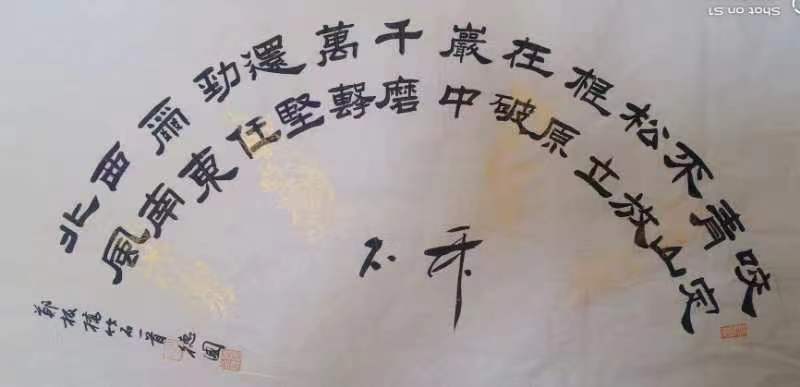 咬定
青山
不放
松立
根原
在破
巖中
千磨
萬擊
還堅
勁任
爾東
西南
北風
鄭板橋竹石一首 德國
Shot on S1